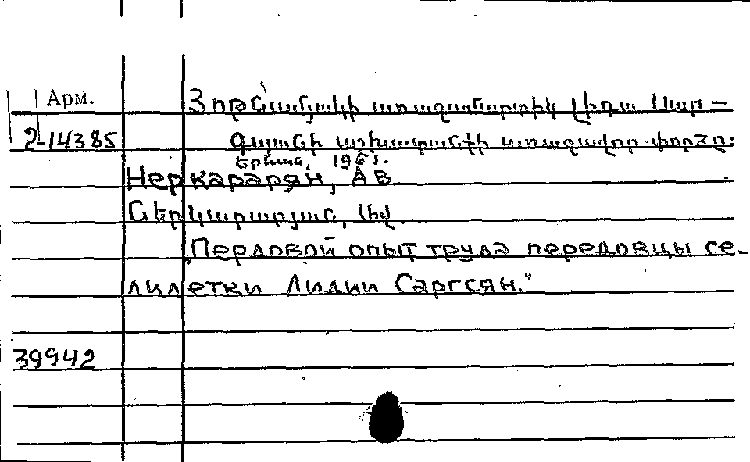 Арм.
Յոթնամյակի առաջամարտիկ Լիդա Սար-
2-14385 գսյանի աշխատանքի առաջավոր փորձը:
Երևան, 196
Неркарарян, А В
Ներկարարյան, Ավ.
"Передовой опыт труда передовцы се-
милетки Лидии Саргсян."
39942